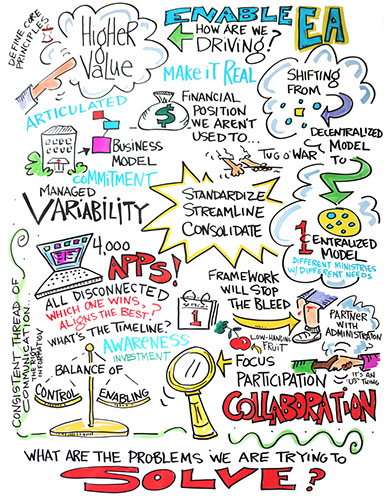 DEFINE CORE
PRINCIPLES
HIGHER
VALUE
ENABLE EA
HOW ARE WE
DRIVING?
MAKE IT REAL
SHIFTING
FROM
DECENTRALIZED
MODEL
TO
CENTRALIZED
MODEL
DIFFERENT MINISTRIES
W/ DIFFERENT NEEDS
ARTICULATED
BUSINESS
MODEL
COMMITMENT
$
FINANCIAL
POSITION
WE AREN'T
USED TO...
TUG O' WAR
MANAGED
VARIABILITY
STANDARDIZE
STREAMLINE
CONSOLIDATE
4,000
APPS!
ALL DISCONNECTED
WHICH ONE WINS,?
ALIGNS THE BEST!
WHAT'S THE TIMELINE?
AWARENESS
INVESTMENT
SEPT.
1
FRAMEWORK
WILL STOP
THE BLEED
PARTNER
WITH
ADMINISTRATION
LOW-HANGING
FRUIT
FOCUS
PARTICIPATION
IT'S AN
"US" THING
COLLABORATION
CONSISTENT THREAD OF
COMMUNICATION
THE RIGHT
INFORMATION
BALANCE OF
CONTROL
ENABLING
WHAT ARE THE PROBLEMS WE ARE TRYING TO
SOLVE?